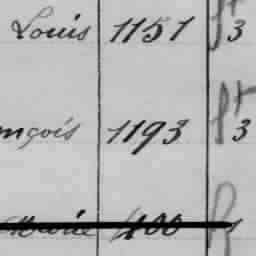 Louis 1151 ft 3
nçois 1193 ft 3
Marie 400